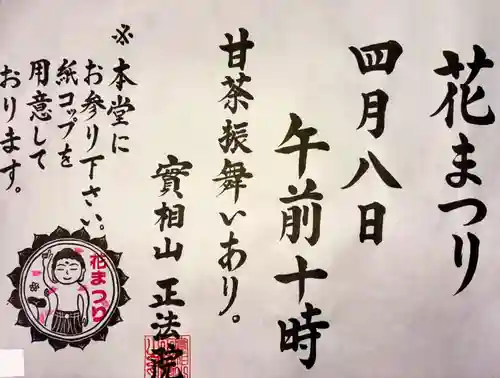 花まつり
四月八日
午前十時
甘茶振舞いあり。
實相山 正法院
※本堂に
お参り下さい。
紙コップを
用意して
おります。
花まつり